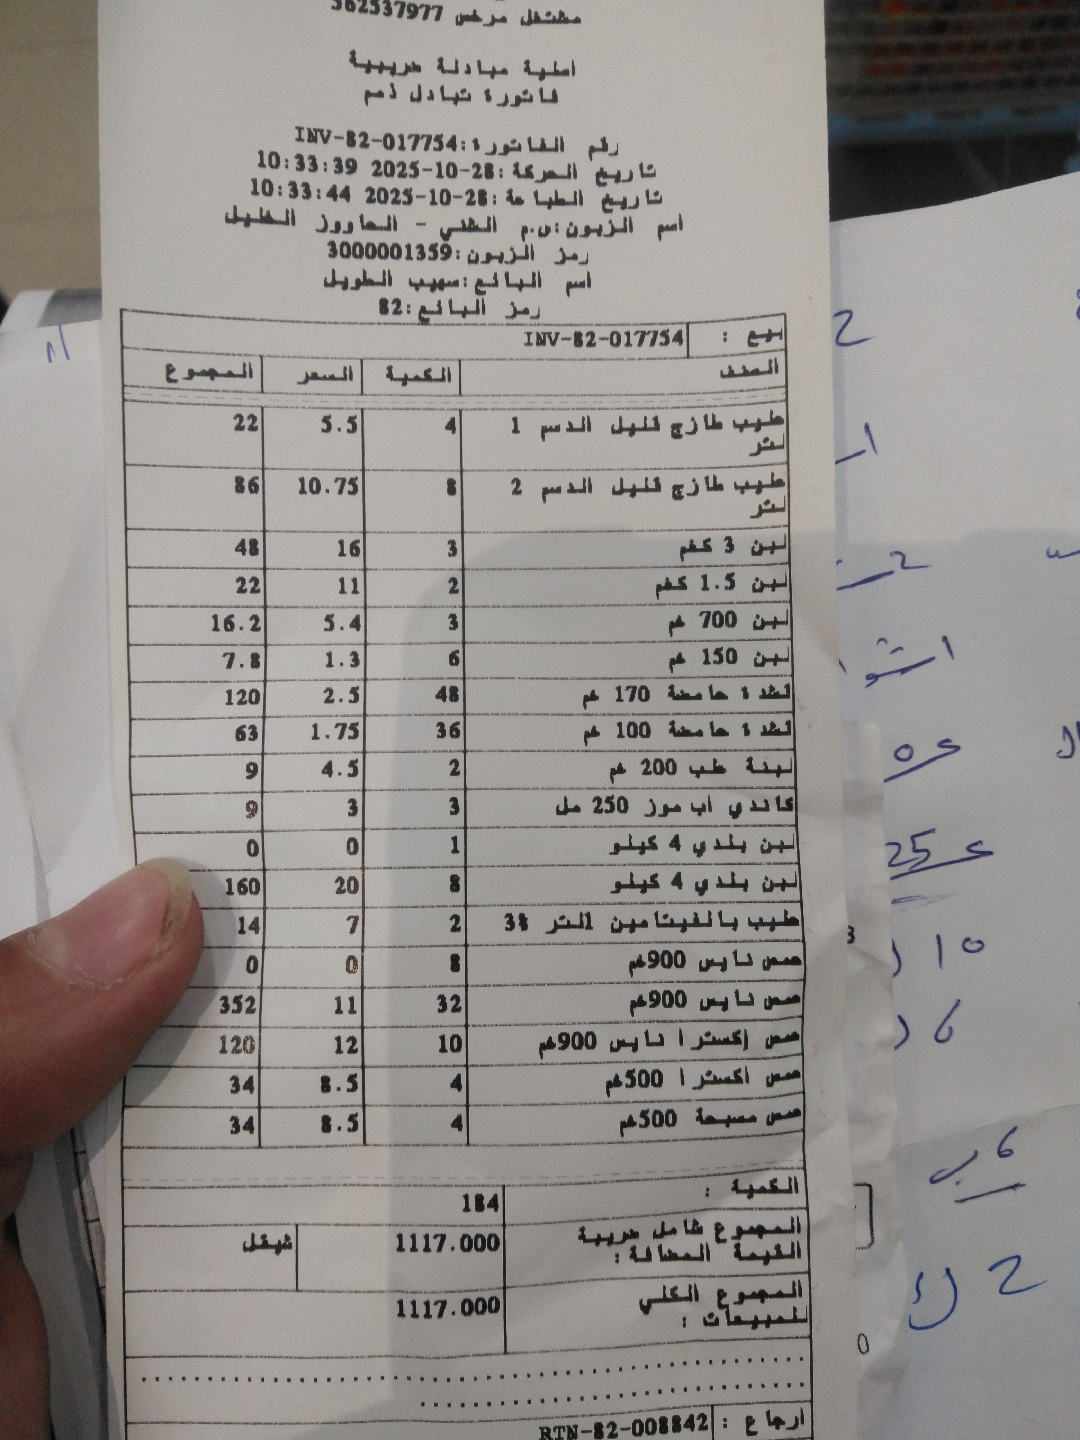 مشتغل مرخص 562537977
اصلية مبادلة ضريبية
فاتورة تبادل ذمم
رقم الفاتورة:INV-82-017754
تاريخ الحركة:28-10-2025 10:33:39
تاريخ الطباعة:28-10-2025 10:33:44
اسم الزبون:س.م الشني - الحاووز الخليل
رمز الزبون:3000001359
اسم البائع:سهيب الطويل
رمز البائع:82
بيع : INV-82-017754
الصنف الكمية السعر المجموع
حليب طازج قليل الدسم 1 4 5.5 22
لتر
حليب طازج قليل الدسم 2 8 10.75 86
لتر
لبن 3 كغم 3 16 48
لبن 1.5 كغم 2 11 22
لبن 700 غم 3 5.4 16.2
لبن 150 غم 6 1.3 7.8
قشدة حامضة 170 غم 48 2.5 120
قشدة حامضة 100 غم 36 1.75 63
لبنة طب 200 غم 2 4.5 9
كاندي اب موز 250 مل 3 3 9
لبن بلدي 4 كيلو 1 0 0
لبن بلدي 4 كيلو 8 20 160
حليب بالفيتامين 1لتر 3% 2 7 14
حمص نايس 900غم 8 0 0
حمص نايس 900غم 32 11 352
حمص إكسترا نايس 900غم 10 12 120
حمص اكسترا 500غم 4 8.5 34
حمص مسبحة 500غم 4 8.5 34
الكمية : 184
المجموع شامل ضريبة 1117.000 شيقل
القيمة المضافة :
المجموع الكلي 1117.000
للمبيعات :
ارجاع : RTN-82-008842